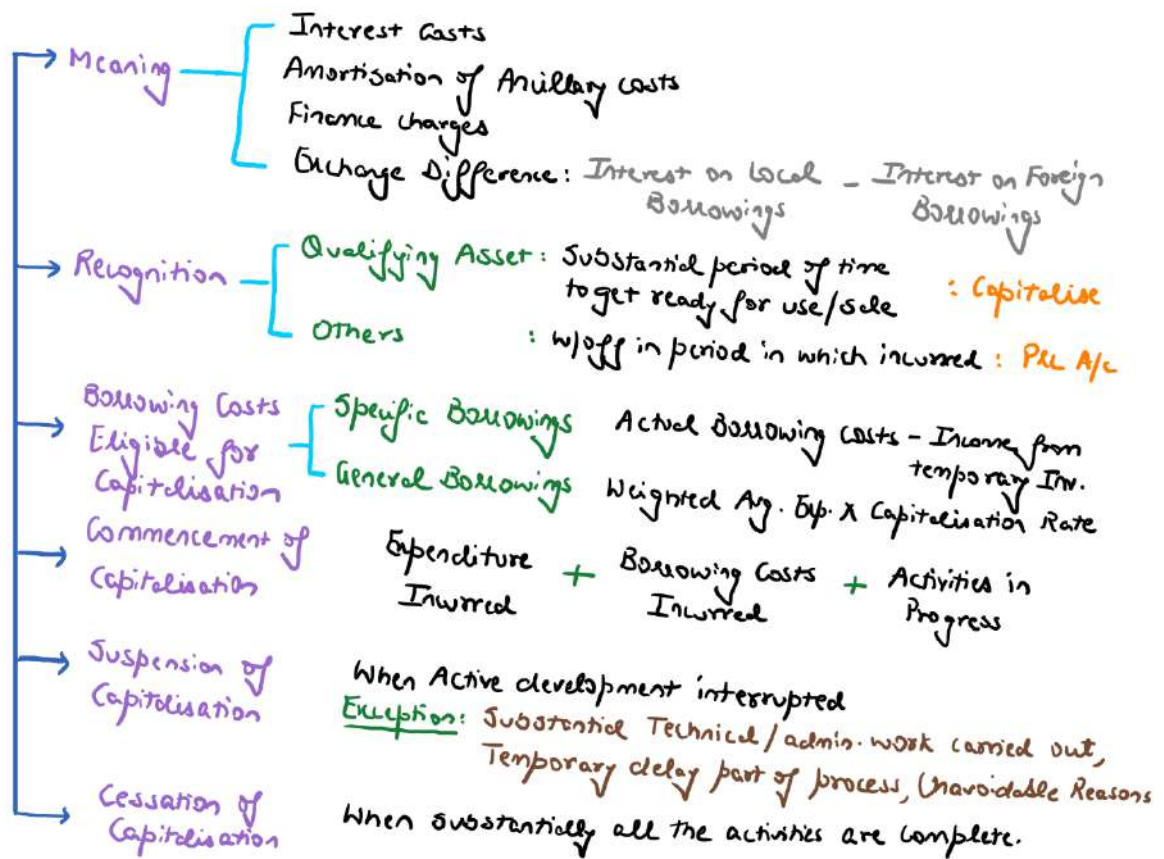 Meaning
Interest Costs
Amortisation of Ancillary costs
Finance charges
Exchange Difference: Interest on Local Borrowings - Interest on Foreign Borrowings
Recognition
Qualifying Asset: Substantial period of time
to get ready for use/sale : Capitalise
Others : w/off in period in which incurred : P&L A/c
Borrowing Costs
Eligible for
Capitalisation
Specific Borrowings Actual Borrowing Costs - Income from
temporary Inv.
General Borrowings Weighted Avg. Exp. X Capitalisation Rate
Commencement of
Capitalisation
Expenditure + Borrowing Costs + Activities in
Incurred Incurred Progress
Suspension of
Capitalisation
When Active development interrupted
Exception: Substantial Technical/admin. work carried out,
Temporary delay part of process, Unavoidable Reasons
Cessation of
Capitalisation
When substantially all the activities are complete.